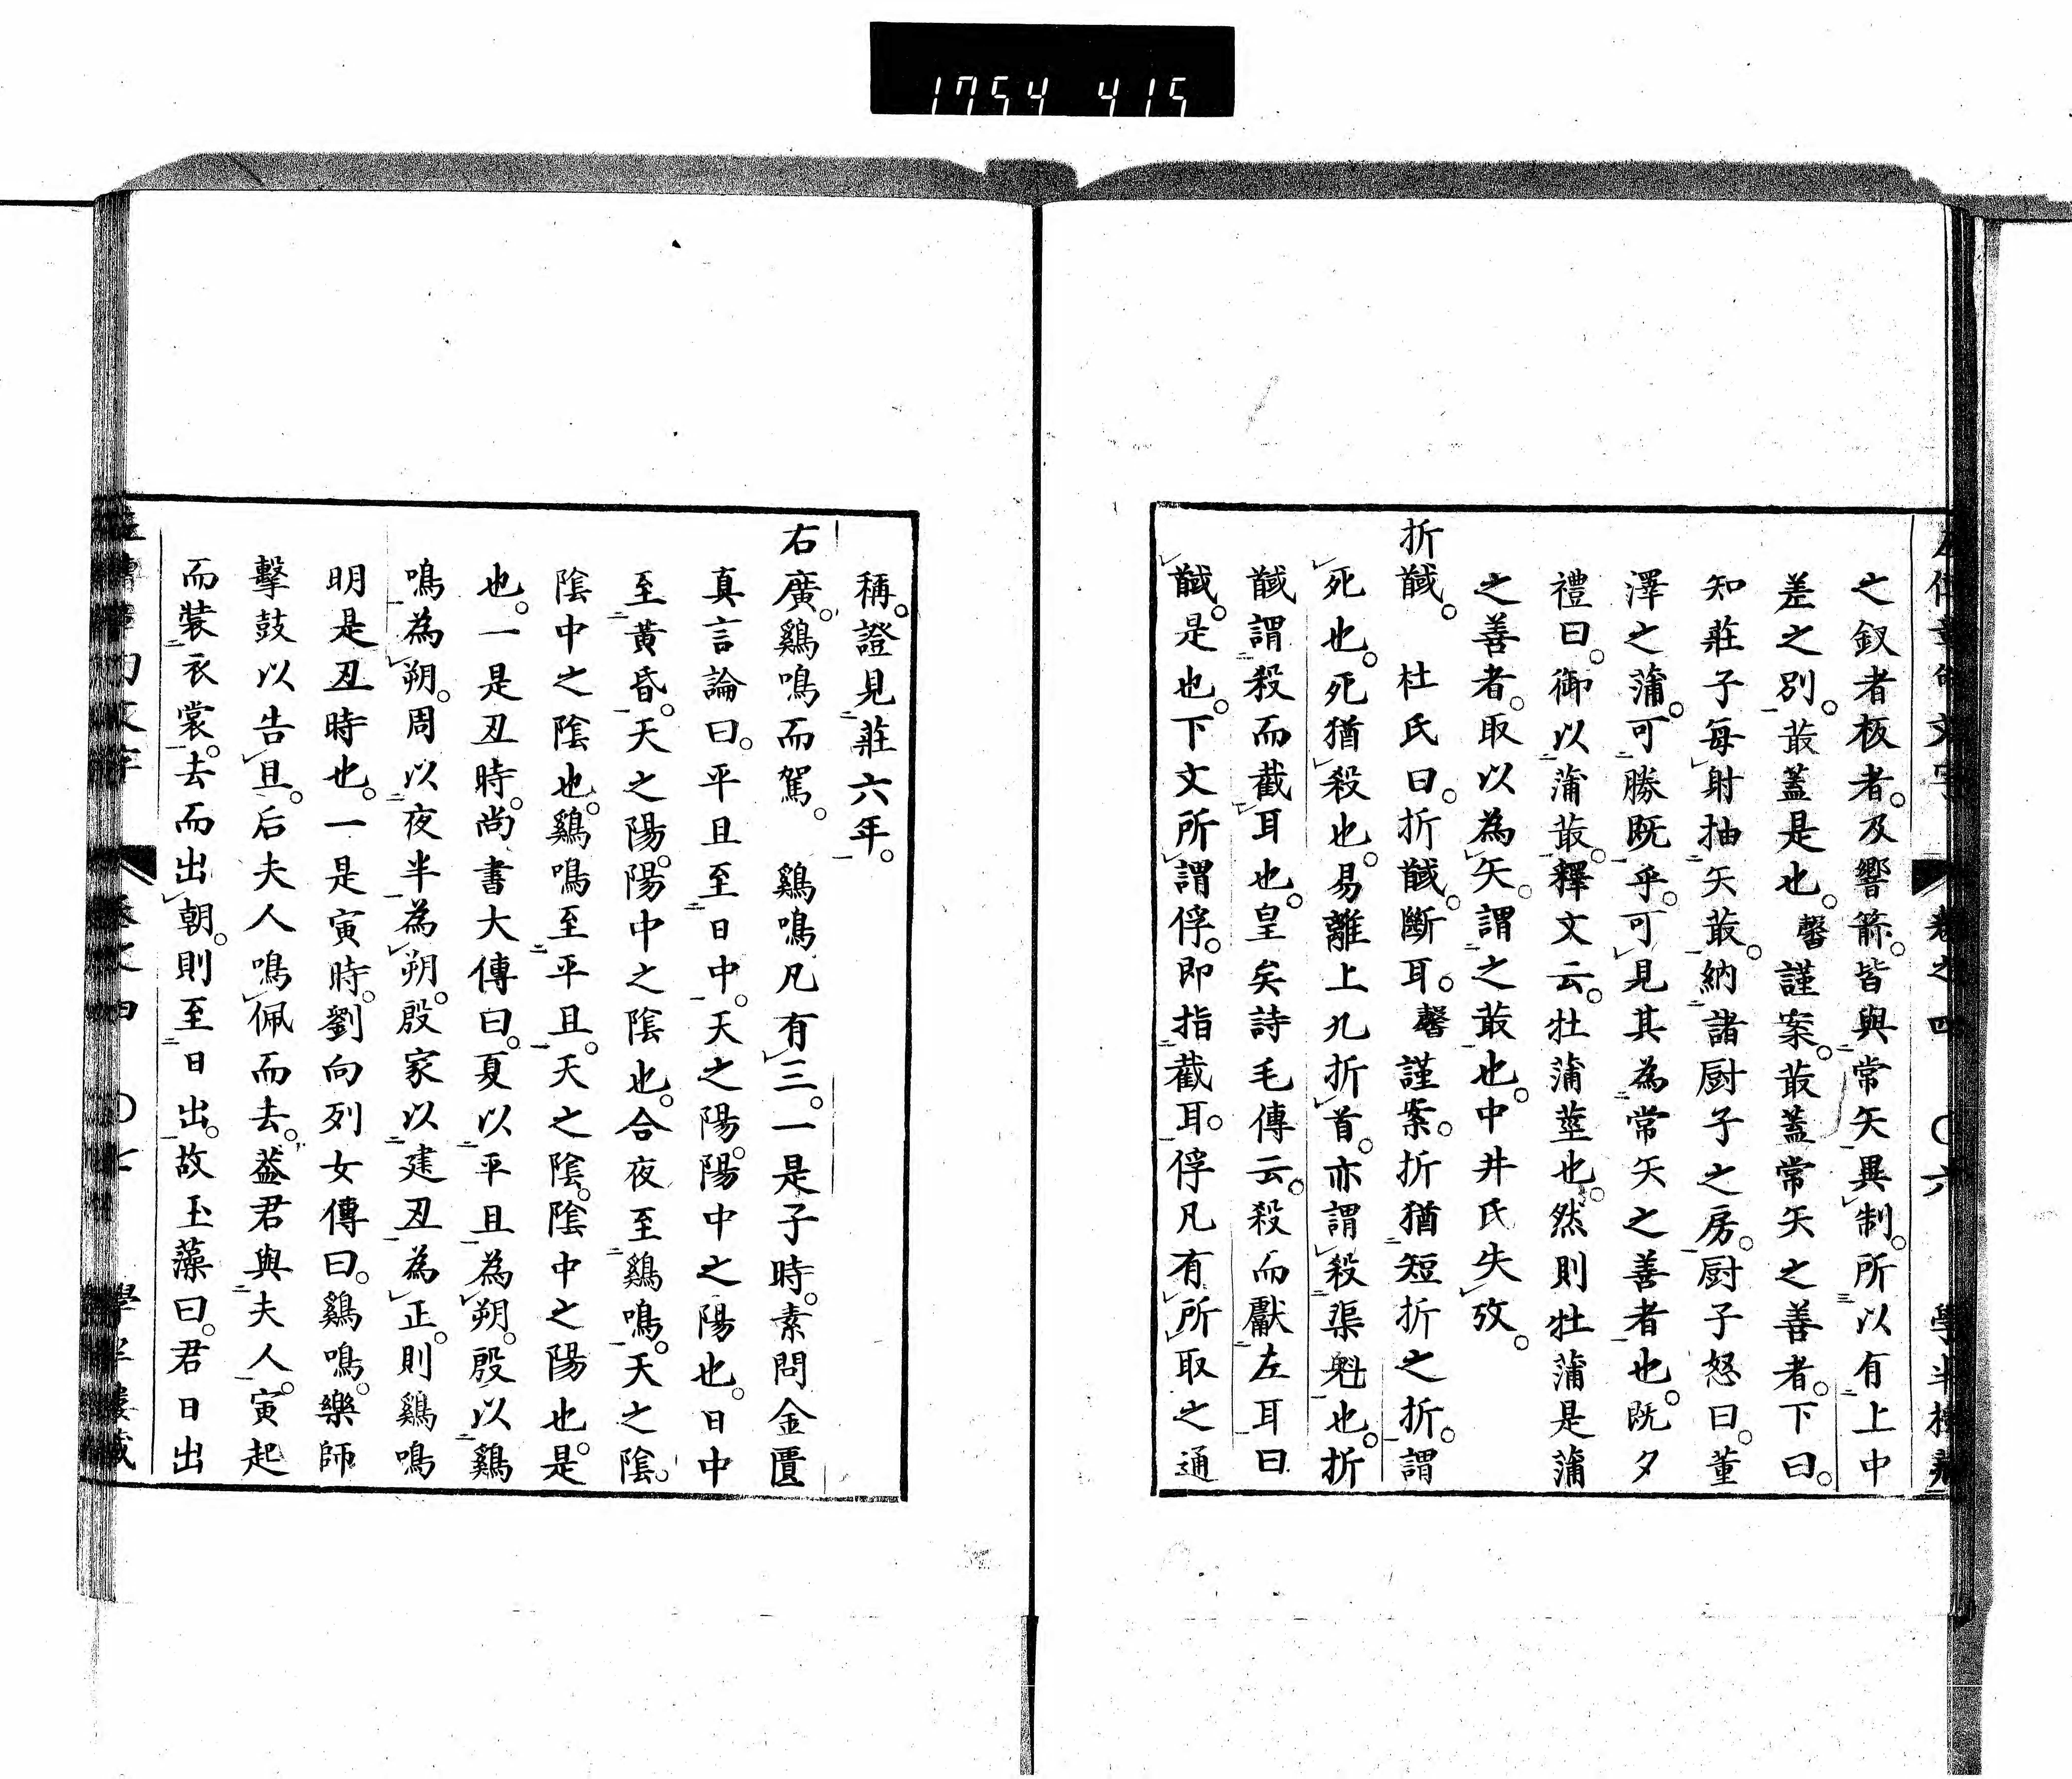 1754 415
左傳章句文字 卷之四 〇六 學半樓藏
之釵者板者。及響箭。皆與常矢異制。所以有上中
差之別。菆蓋是也。馨謹案。菆蓋常矢之善者。下曰。
知莊子每射抽矢菆。納諸厨子之房。厨子怒曰。董
澤之蒲。可勝既乎。可見其為常矢之善者也。既夕
禮曰。御以蒲菆。釋文云。牡蒲莖也。然則牡蒲是蒲
之善者。取以為矢。謂之菆也。中井氏失攷。
折馘。 杜氏曰。折馘。斷耳。馨謹案。折猶短折之折。謂
死也。死猶殺也。易離上九折首。亦謂殺渠魁也。折
馘謂殺而截耳也。皇矣詩毛傳云。殺而獻左耳曰
馘。是也。下文所謂俘。即指截耳。俘凡有所取之通
稱。證見莊六年。
右廣。鷄鳴而駕。 鷄鳴凡有三。一是子時。素問金匱
真言論曰。平旦至日中。天之陽。陽中之陽也。日中
至黃昏。天之陽。陽中之陰也。合夜至鷄鳴。天之陰。
陰中之陰也。鷄鳴至平旦。天之陰。陰中之陽也。是
也。一是丑時。尚書大傳曰。夏以平旦為朔。殷以鷄
鳴為朔。周以夜半為朔。殷家以建丑為正。則鷄鳴
明是丑時也。一是寅時。劉向列女傳曰。鷄鳴。樂師
擊鼓以告旦。后夫人鳴佩而去。葢君與夫人。寅起
而裝衣裳。去而出朝。則至日出。故玉藻曰。君日出
左傳章句文字 卷之四 〇七 學半樓藏